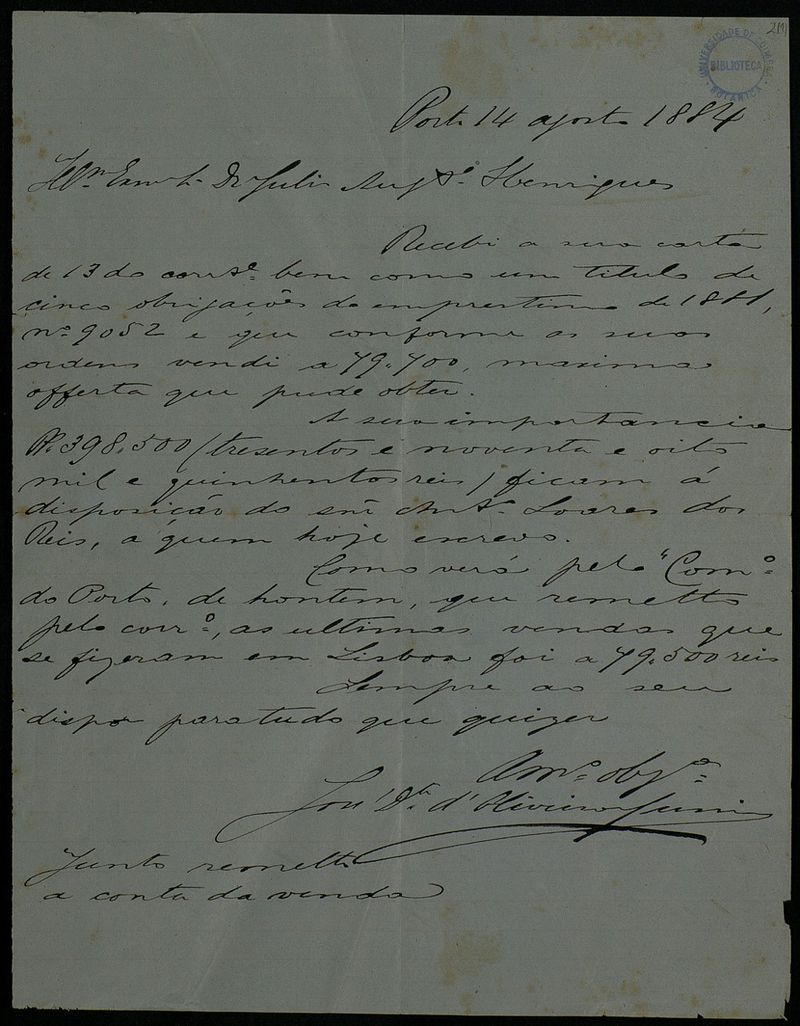 211
UNIVERSIDADE DE COIMBRA
BIBLIOTECA
BOTANICA
Porto 14 agosto 1884
Illmo Exmo Sr. Dr Julio Augto Henriques
Recebi a sua carta
de 13 do corrte bem como um titulo de
cinco obrigações do emprestimo de 1881,
nº 9052 e que conforme as suas
ordens vendi a 79.700, maxima
offerta que pude obter.
A sua importancia
Rs 398.500 (tresentos e noventa e oito
mil e quinhentos reis) ficam á
disposição do snr Anto Soares dos
Reis, a quem hoje escrevo.
Como verá pelo "Como
do Porto, de hontem, que remetto
pelo corro, as ultimas vendas que
se fizeram em Lisboa foi a 79.500 reis
Sempre ao seu
dispor para tudo que quizer
Amo obgo
d'Oliveira Junior
Junto remetto
a conta da venda